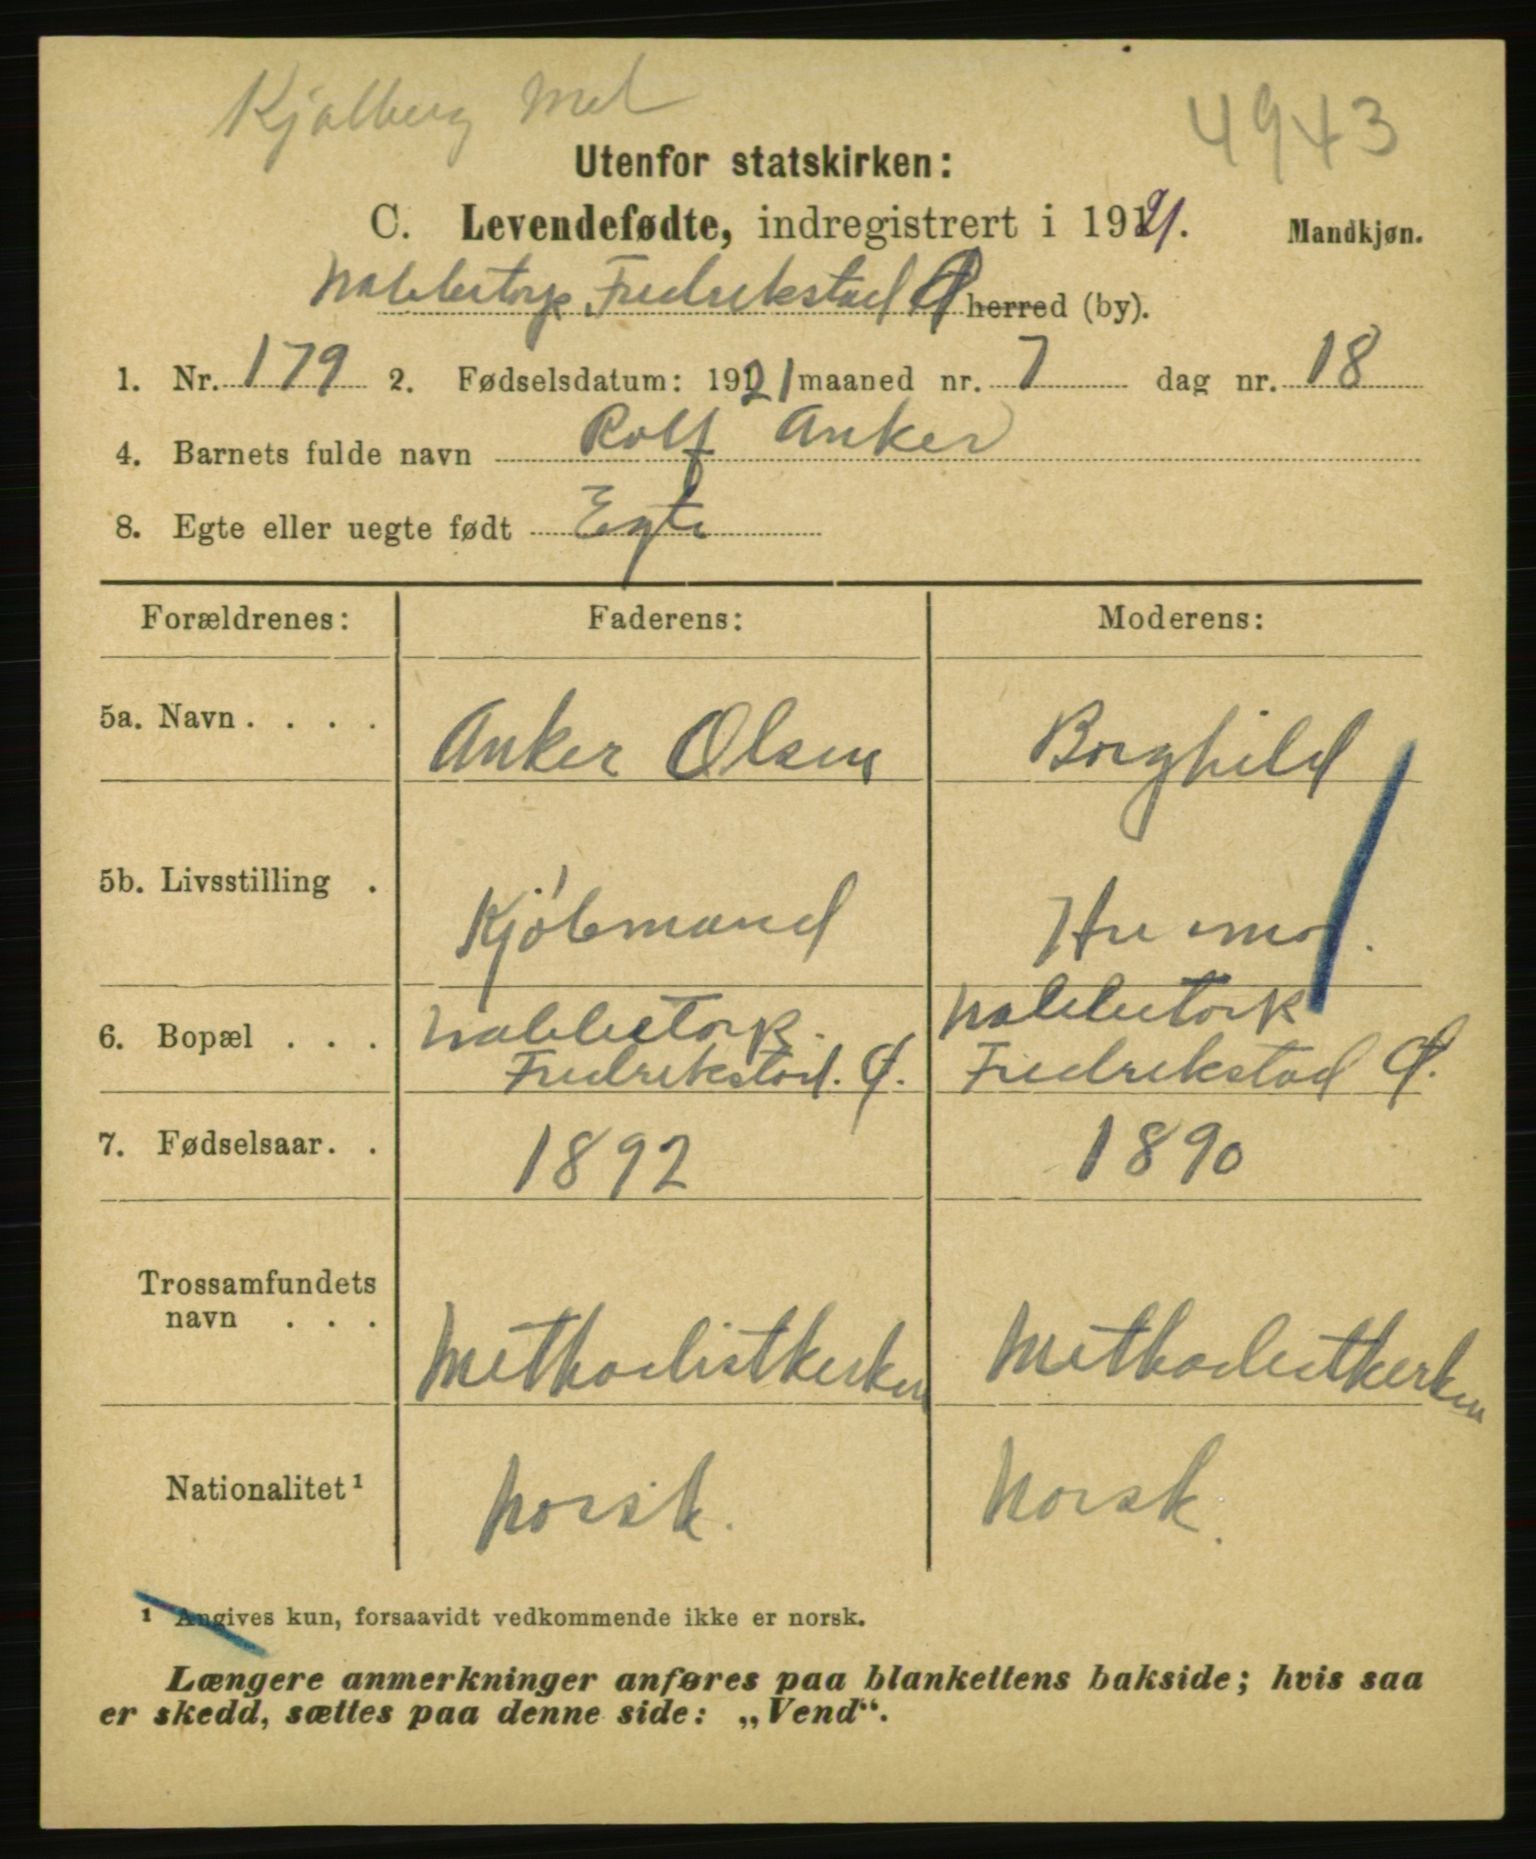 Kjølberg Met
4943
Utenfor statskirken:
C. Levendefødte, indregistrert i 1921. Mandkjøn.
Nabbetorp Fredrikstad Ø herred (by).
1. Nr. 179 2. Fødselsdatum: 1921 maaned nr. 7 dag nr. 18
4. Barnets fulde navn Rolf Anker
8. Egte eller uegte født Egte
Forældrenes: Faderens: Moderens:
5a. Navn . . . . Anker Olsen Borghild
5b. Livsstilling . Kjøbmand Husmor.
6. Bopæl . . . Nabbetorp. Nabbetork
Fredrikstad. Ø. Fredrikstad Ø.
7. Fødselsaar. . 1892 1890
Trossamfundets
navn . . . Methodistkirken Methodistkirken
Nationalitet¹ Norsk. Norsk.
¹ Angives kun, forsaavidt vedkommende ikke er norsk.
Længere anmerkninger anføres paa blankettens bakside; hvis saa
er skedd, sættes paa denne side: „Vend“.